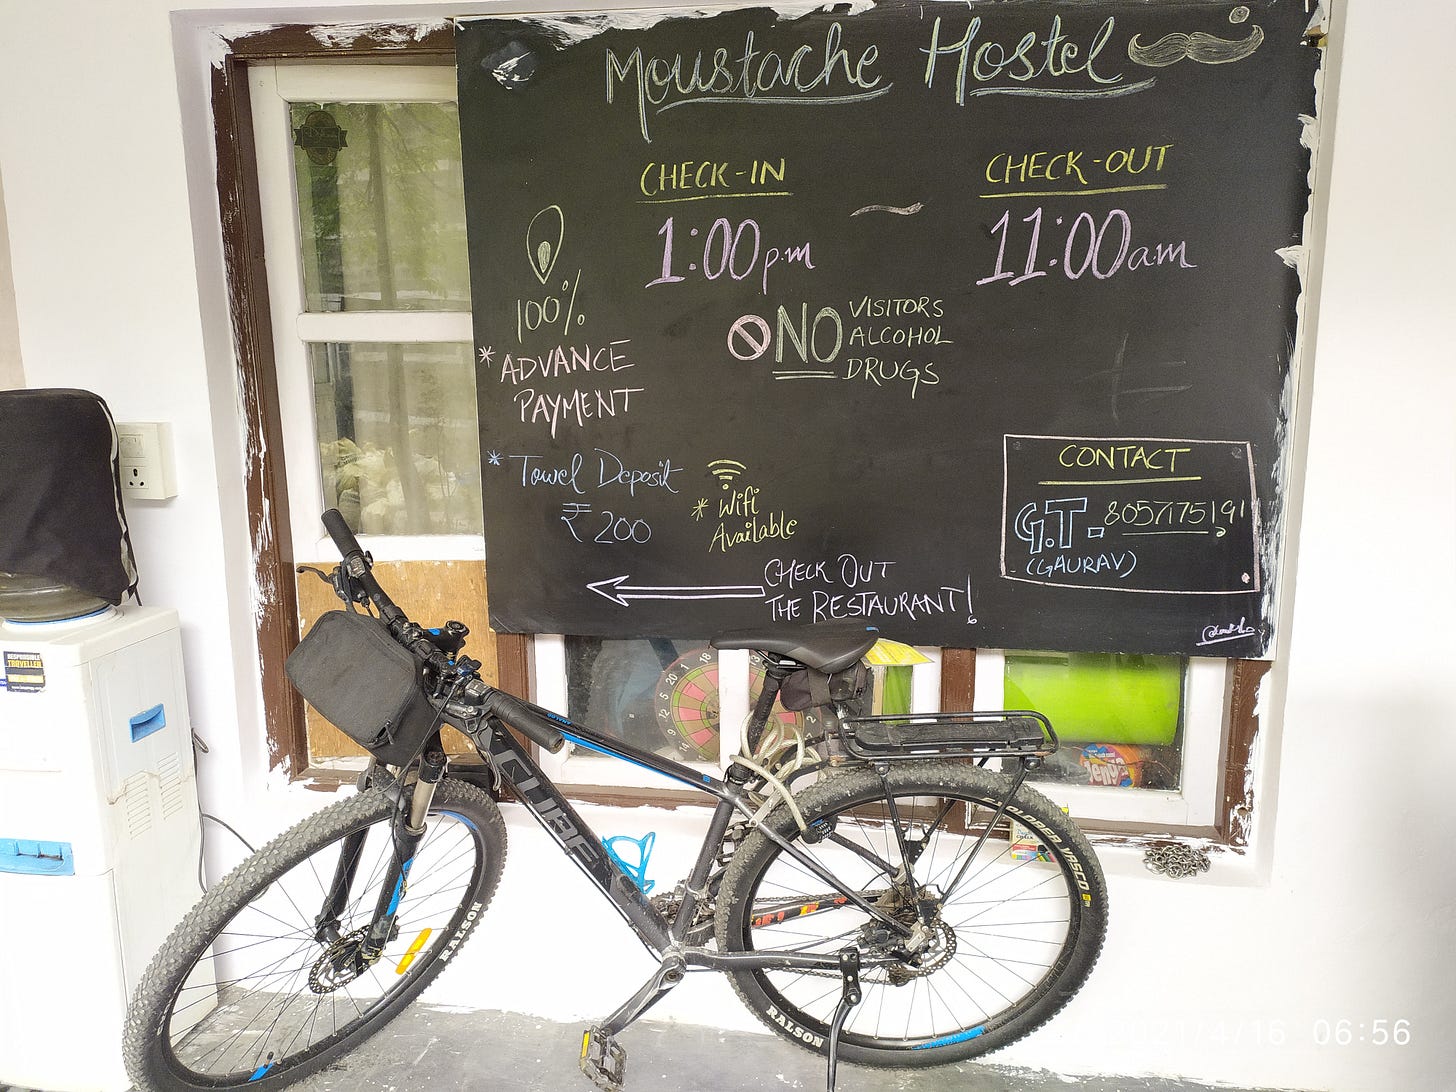 Moustache Hostel
CHECK-IN
1:00 p.m
~
CHECK-OUT
11:00 a.m
100%
* ADVANCE
PAYMENT
NO
VISITORS
ALCOHOL
DRUGS
* Towel Deposit
₹ 200
* Wifi
Available
CHECK OUT
THE RESTAURANT!
CONTACT
G.T. - 8057175191
(GAURAV)
RESPONSIBLE
TRAVELLER
20 1 18
5
12
9
14
Jenga
CUBE
RALSON
RALSON
BLOODER VASCO
2021/4/16 06:56